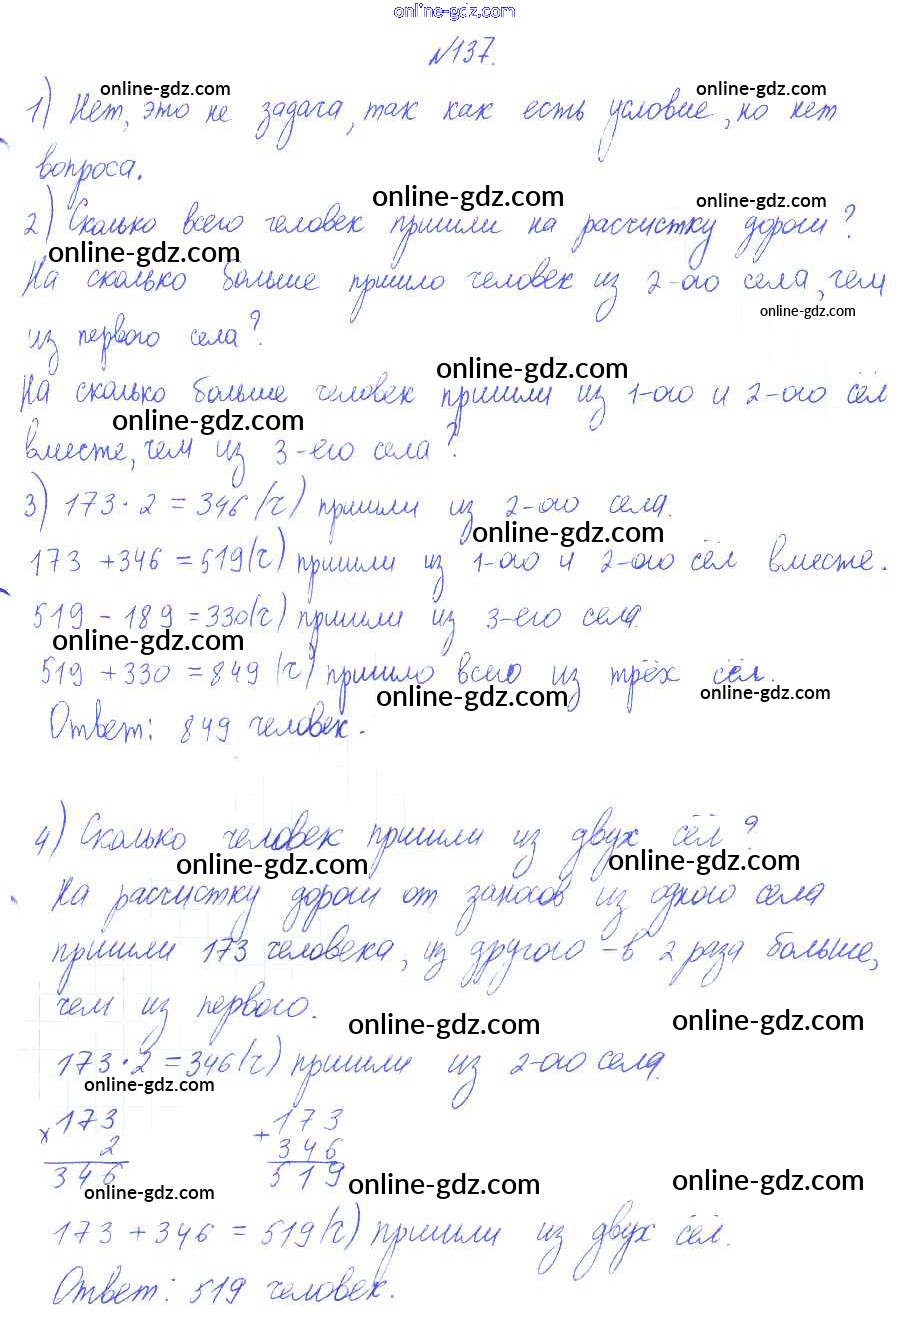 online-gdz.com
№137.
online-gdz.com online-gdz.com
1) Нет, это не задача, так как есть условие, но нет
вопроса.
online-gdz.com online-gdz.com
2) Сколько всего человек пришли на расчистку дороги?
online-gdz.com
На сколько больше пришло человек из 2-ого села, чем
online-gdz.com
из первого села?
online-gdz.com
На сколько больше человек пришли из 1-ого и 2-ого сёл
online-gdz.com
вместе, чем из 3-его села?
3) 173 · 2 = 346 (ч) пришли из 2-ого села.
online-gdz.com
173 + 346 = 519 (ч) пришли из 1-ого и 2-ого сёл вместе.
519 - 189 = 330 (ч) пришли из 3-его села.
online-gdz.com
519 + 330 = 849 (ч) пришло всего из трёх сёл.
online-gdz.com online-gdz.com
Ответ: 849 человек.
4) Сколько человек пришли из двух сёл?
online-gdz.com online-gdz.com
На расчистку дороги от заносов из одного села
пришли 173 человека, из другого - в 2 раза больше,
чем из первого.
online-gdz.com online-gdz.com
173 · 2 = 346 (ч) пришли из 2-ого села.
online-gdz.com
× 173 + 173
2 346
346 519
online-gdz.com online-gdz.com online-gdz.com
173 + 346 = 519 (ч) пришли из двух сёл.
Ответ: 519 человек.